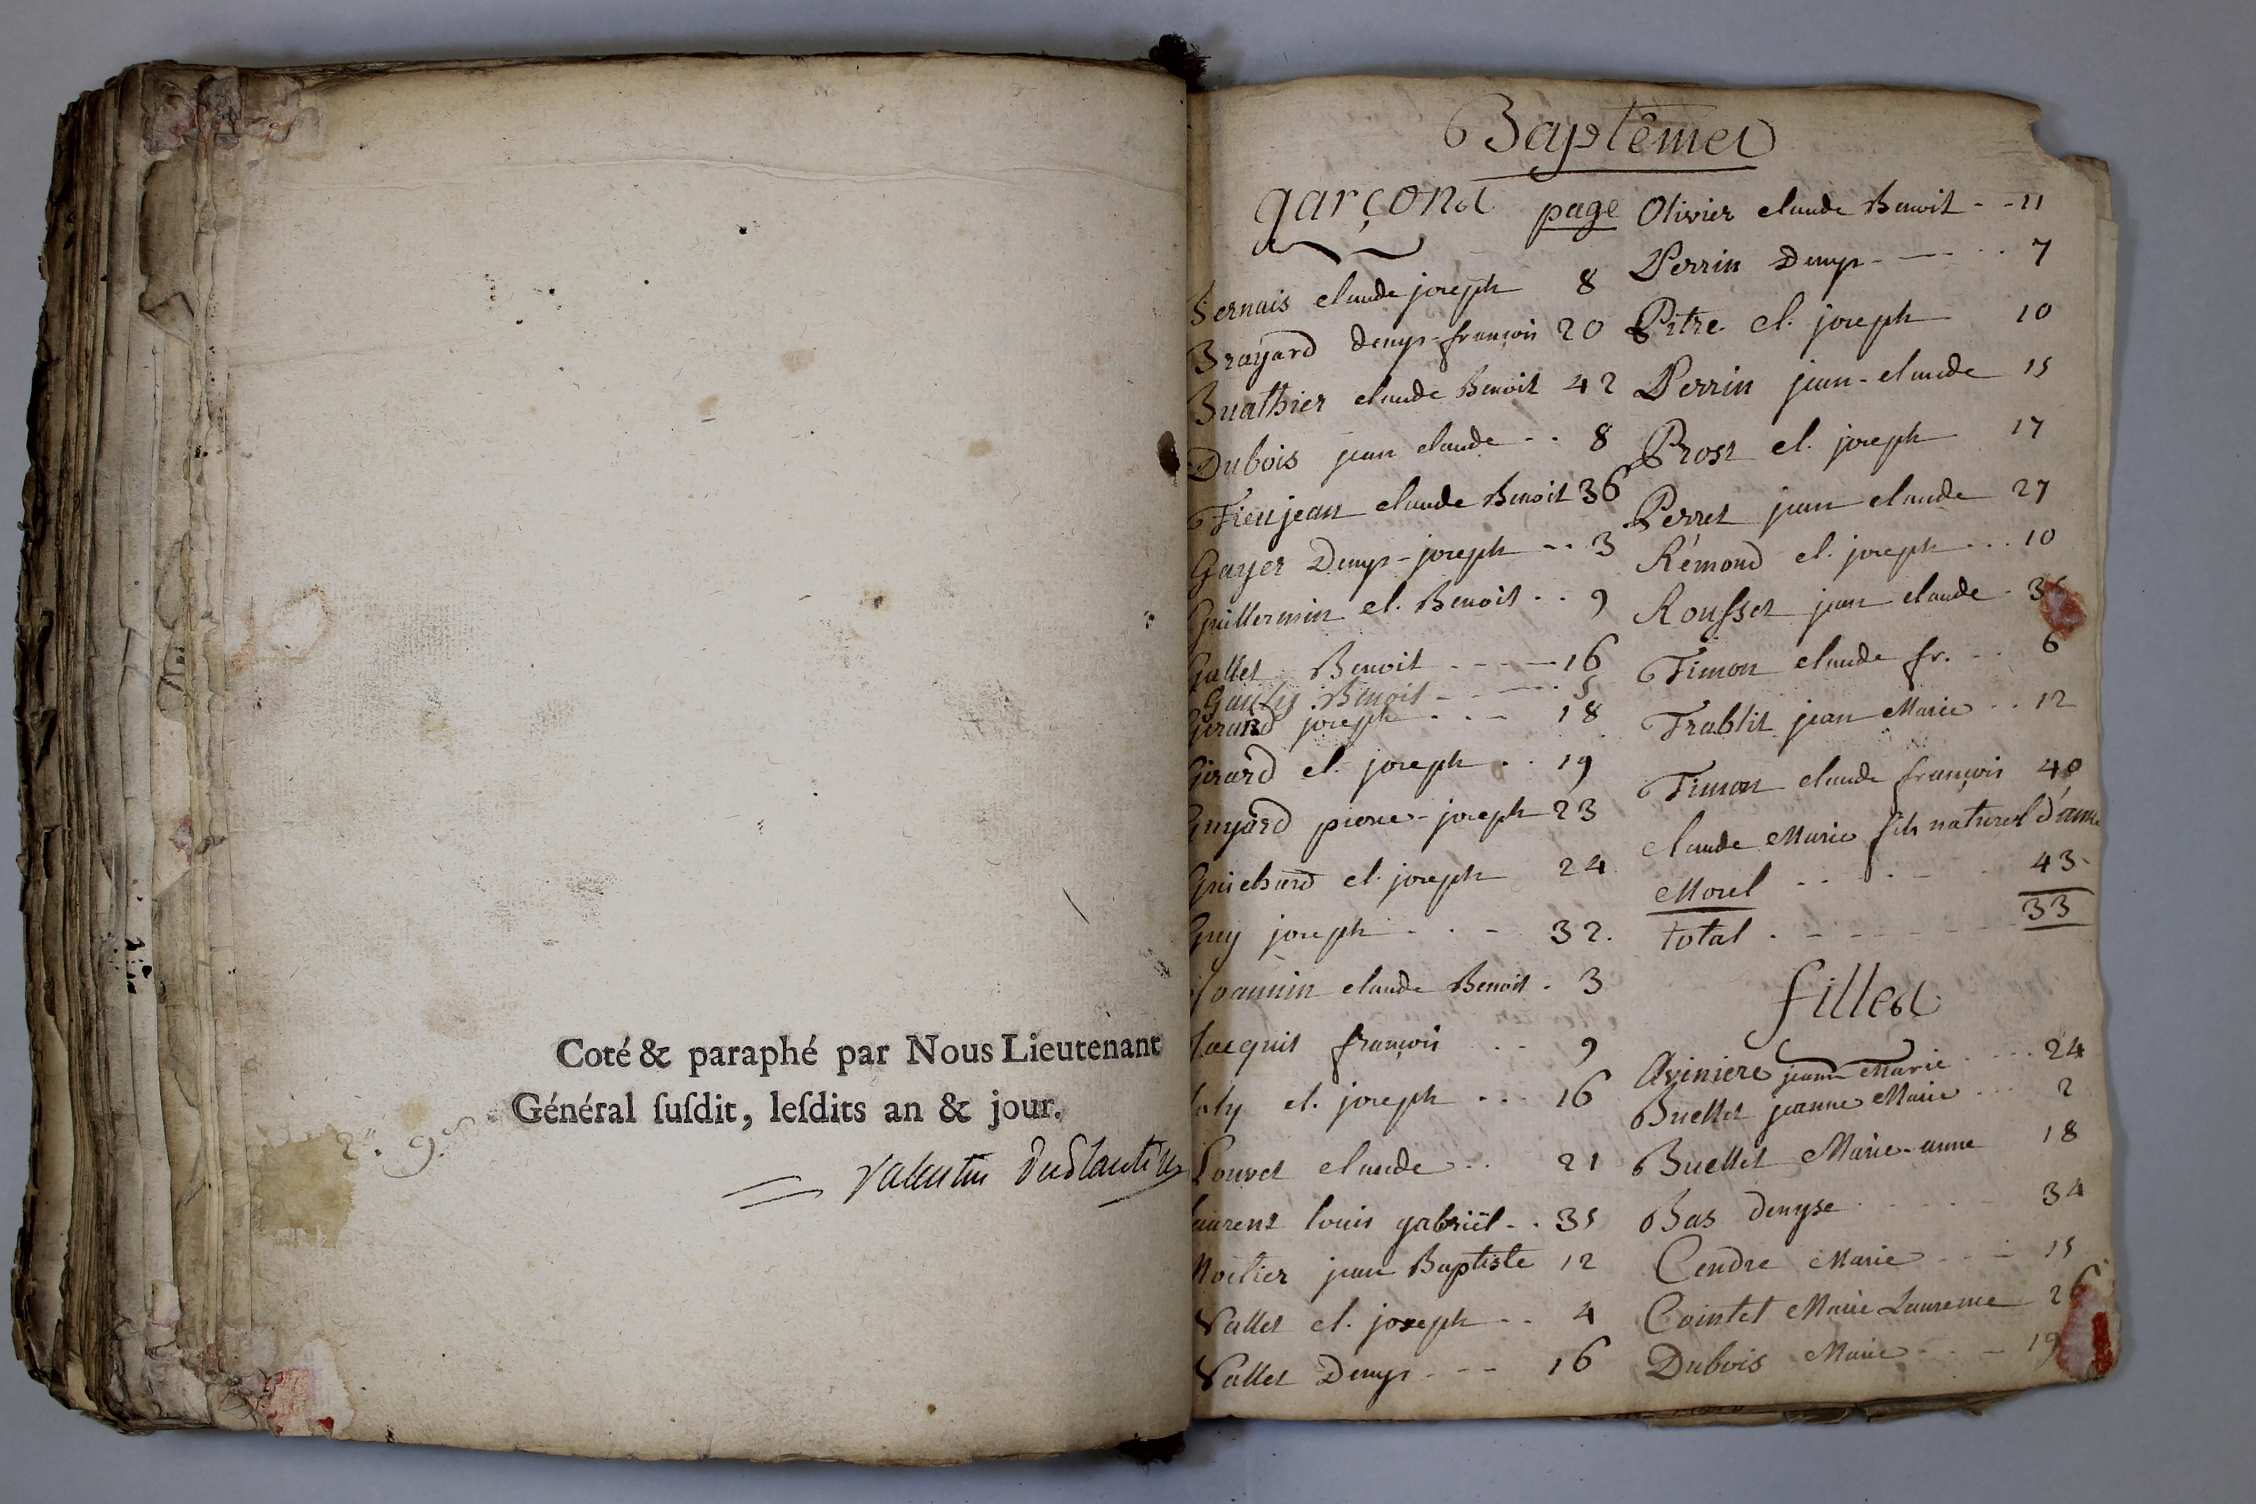 Coté & paraphé par Nous Lieutenant
Général ſuſdit, leſdits an & jour.
Baptêmes
garçons page
Bernais claude joseph 8
Brayard denys-françois 20
Buathier claude Benoit 42
Dubois jean claude - - 8
Fieujean claude Benoit 36
Gayet Denys-joseph - - 3
Guillermin cl. Benoit - - 9
Gallet Benoit - - - - 16
Benoit - - - - 5
Girard joseph - - - 18
Girard cl. joseph - - 19
Guyard pierre-joseph 23
Guichard cl. joseph 24
Guy joseph - - - 32.
Joannin claude Benoit - 3
Jacquit françois - - 9
Joly cl. joseph - - - 16
Louvet claude - - 21
Laurent louis gabriël - - 35
Moitier jean Baptiste 12
Vallet cl. joseph - - 4
Vallet Denys - - - 16
Olivier claude Benoit - - 11
Perrin Denys - - - - 7
Pitre cl. joseph 10
Perrin jean-claude 15
Prost cl. joseph 17
Perret jean claude 27
Rémond cl. joseph - - - 10
Rousset jean claude -
Timon claude fr. - - 6
Trablit jean Marie - - 12
Timon claude françois 40
claude Marie fils naturel d'anne
Morel - - - - - 43-
total - - - - - - - 33
filles
Aviniere jeanne Marie - - - - 24
Buellet jeanne Marie - - - 2
Buellet Marie-anne 18
Bas denyse - - - - - 34
Cendre Marie - - - 15
Cointet Marie Laurence 26
Dubois Marie - - - - 19